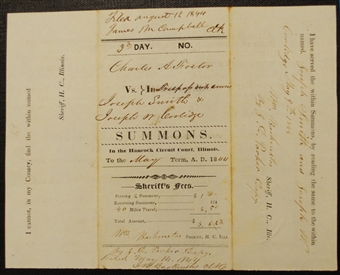 Filed August 12 1844
James M. Campbell Clk
3d DAY. NO.
Charles A. Foster
Vs.
Joseph Smith &
Joseph W Coolidge
SUMMONS.
In the Hancock Circuit Court, Illinois.
To the May Term, A. D. 1844
Sheriff's Fees.
Returning Summons,
Miles Travel,
Total Amount,
Wm Backenstos Sheriff, H. C. Ills
By J. D. Parker Deputy
May 14. 1844
I have served the within Summons, by reading the same to the within
named Joseph Smith and Joseph W.
Coolidge May 9th 1844
Wm Backenstos
Sheriff, H. C., Ill.
By J. D. Parker Deputy
I cannot, in my County, find the within named
Sheriff, H. C., Illinois.